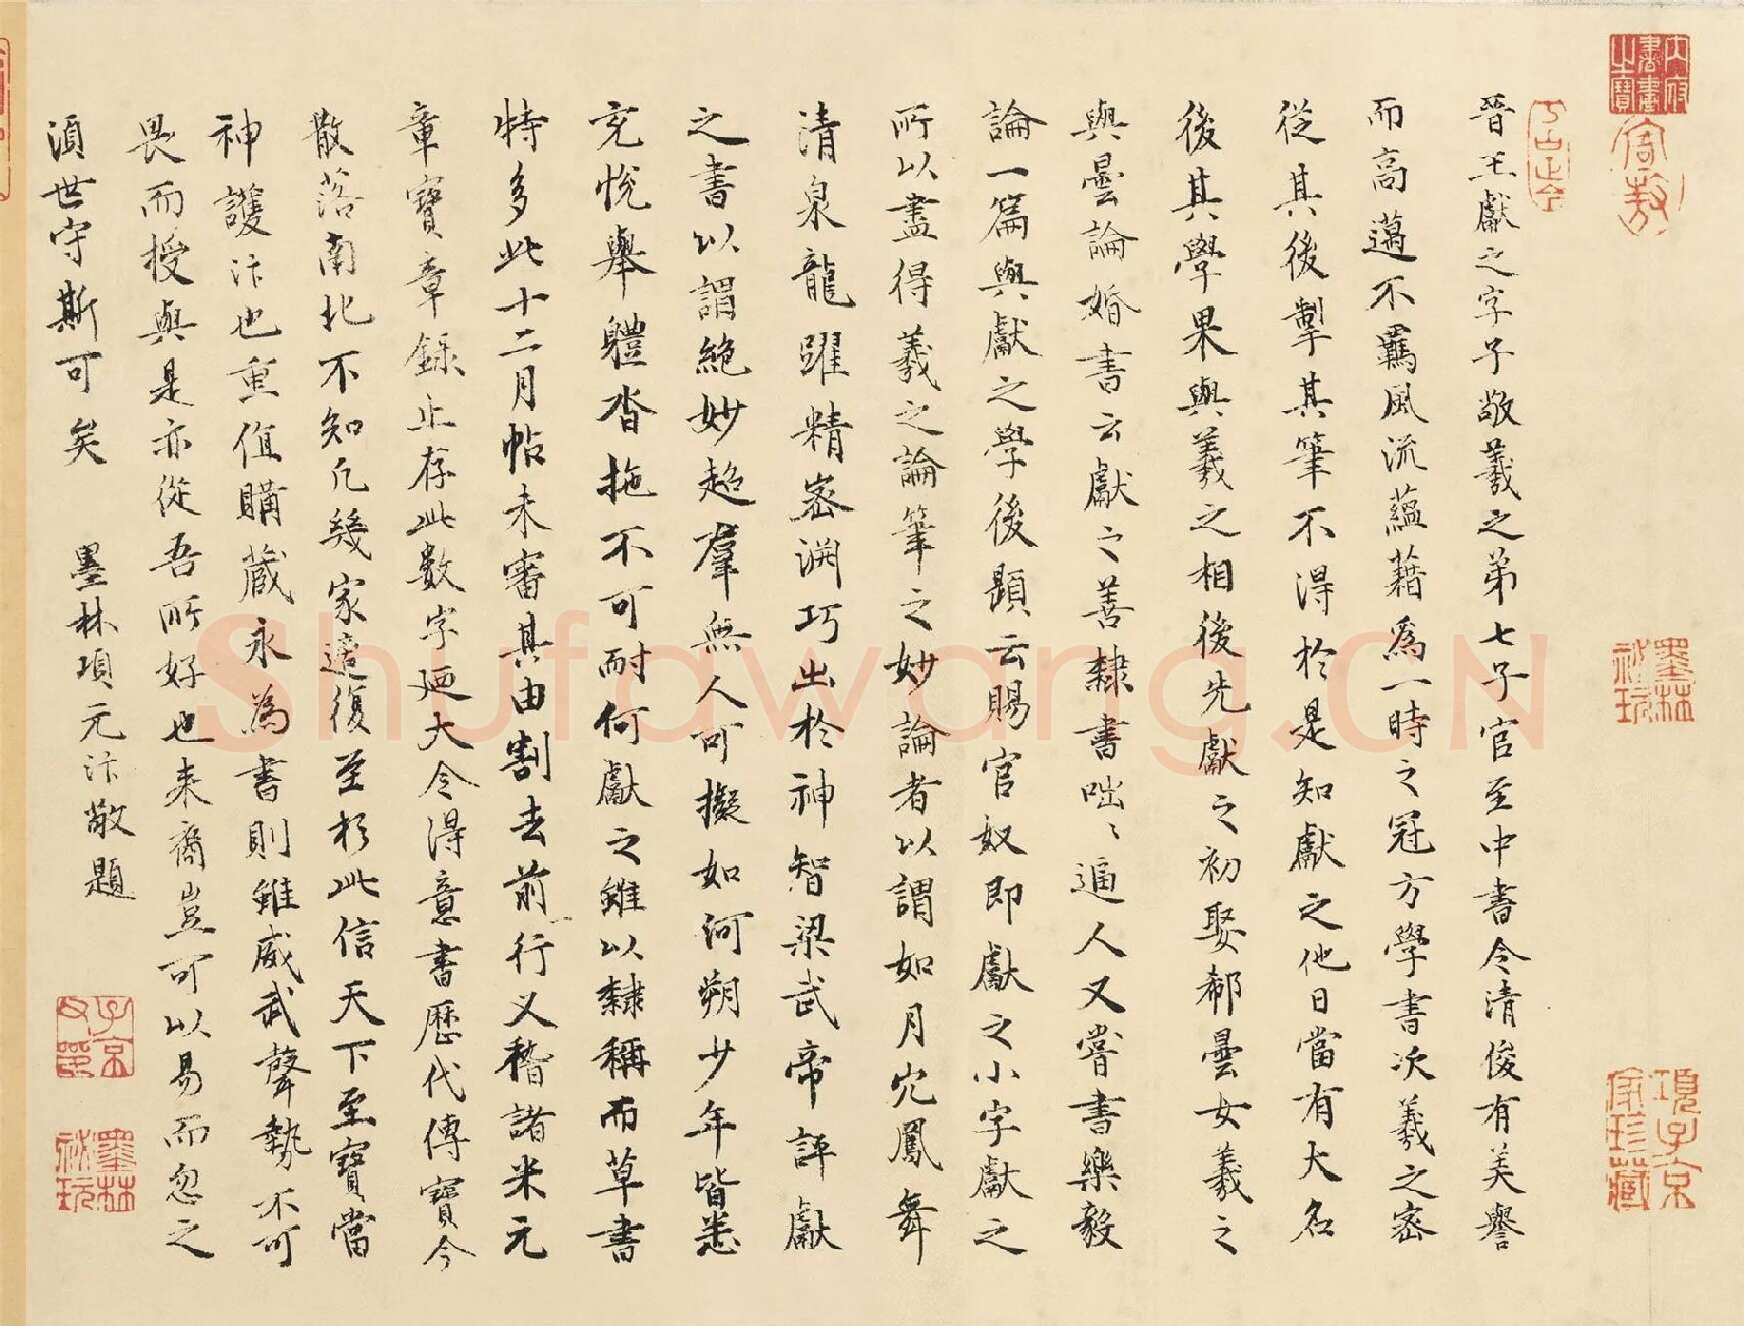 晉王獻之字子敬羲之弟七子官至中書令清俊有美譽
而高邁不羈風流蘊藉為一時之冠方學書次羲之密
從其後掣其筆不得於是知獻之他日當有大名
後其學果與羲之相後先獻之初娶郗曇女羲之
與曇論婚書云獻之善隸書咄咄逼人又嘗書樂毅
論一篇與獻之學後題云賜官奴即獻之小字獻之
所以盡得羲之論筆之妙論者以謂如月穴鳳舞
清泉龍躍精密淵巧出於神智梁武帝評獻
之書以謂絕妙超羣無人可擬如河朔少年皆悉
充悅舉體沓拖不可耐何獻之雖以隸稱而草書
特多此十二月帖未審其由割去前行又稽諸米元
章寶章錄止存此數字廼大令得意書歷代傳寶今
散落南北不知凡幾家遞復至於此信天下至寶當
神護汴也重值購藏永為書則雖威武聲勢不可
畏而授與是亦從吾所好也来裔豈可以易而忽之
須世守斯可矣 墨林項元汴敬題
內府書畫之寶
墨林祕玩
項子京家珍藏
子京父印
墨林祕玩
Shufawang.CN